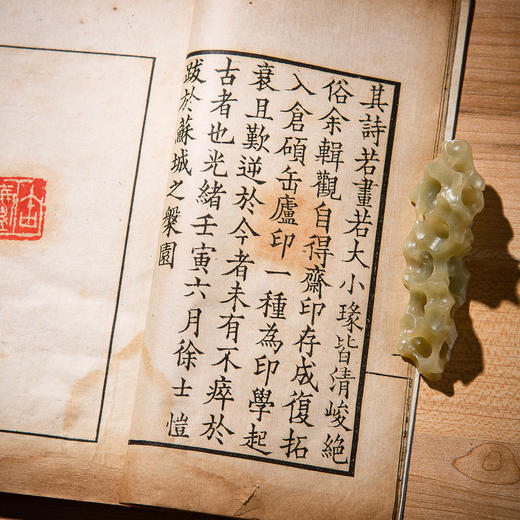 其詩若畫若大小瑑皆清峻絕
俗余輯觀自得齋印存成復拓
入倉碩缶廬印一種為印學起
衰且歎逆於今者未有不瘁於
古者也光緒壬寅六月徐士愷
跋於蘇城之槃園